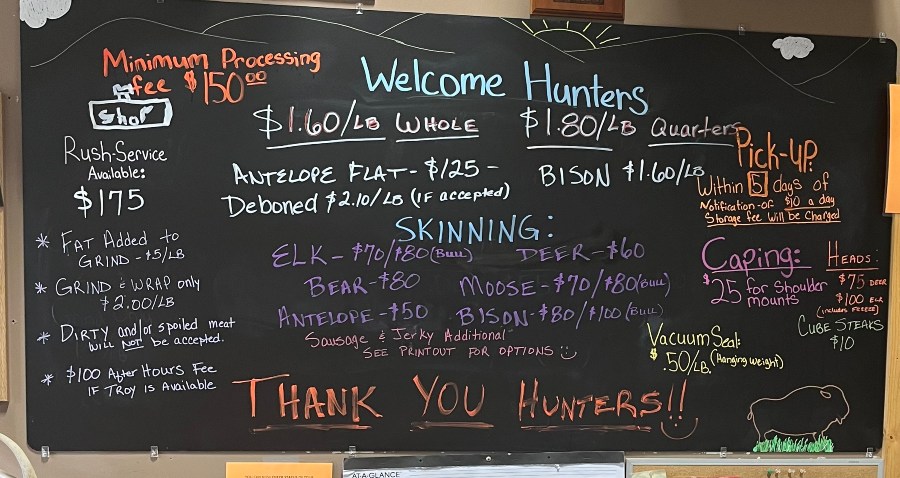 Minimum Processing
fee $150.00
Shop
Rush-Service
Available:
$175
* Fat Added to
Grind - $5/LB
* Grind & Wrap only
$2.00/LB
* Dirty and/or spoiled meat
will NOT be accepted.
* $100 After Hours Fee
IF TROY is Available
Welcome Hunters
$1.60/LB WHOLE
$1.80/LB Quarters
ANTELOPE FLAT - $125 -
BISON $1.60/LB
Deboned $2.10/LB (IF accepted)
SKINNING:
ELK - $70/$80 (Bull)
DEER - $60
BEAR - $80
MOOSE - $70/$80 (Bull)
ANTELOPE - $50
BISON - $80/$100 (Bull)
Sausage & Jerky Additional
SEE PRINTOUT FOR OPTIONS
Pick-up:
Within 5 days of
Notification - or $10 a day
Storage fee will be Charged
Caping:
$25 for Shoulder
mounts
HEADS:
$75 DEER
$100 ELK
(includes FREEZE)
CUBE STEAKS
$10
Vacuum Seal:
$.50/LB. (Hanging weight)
THANK YOU HUNTERS!!
AT-A-GLANCE